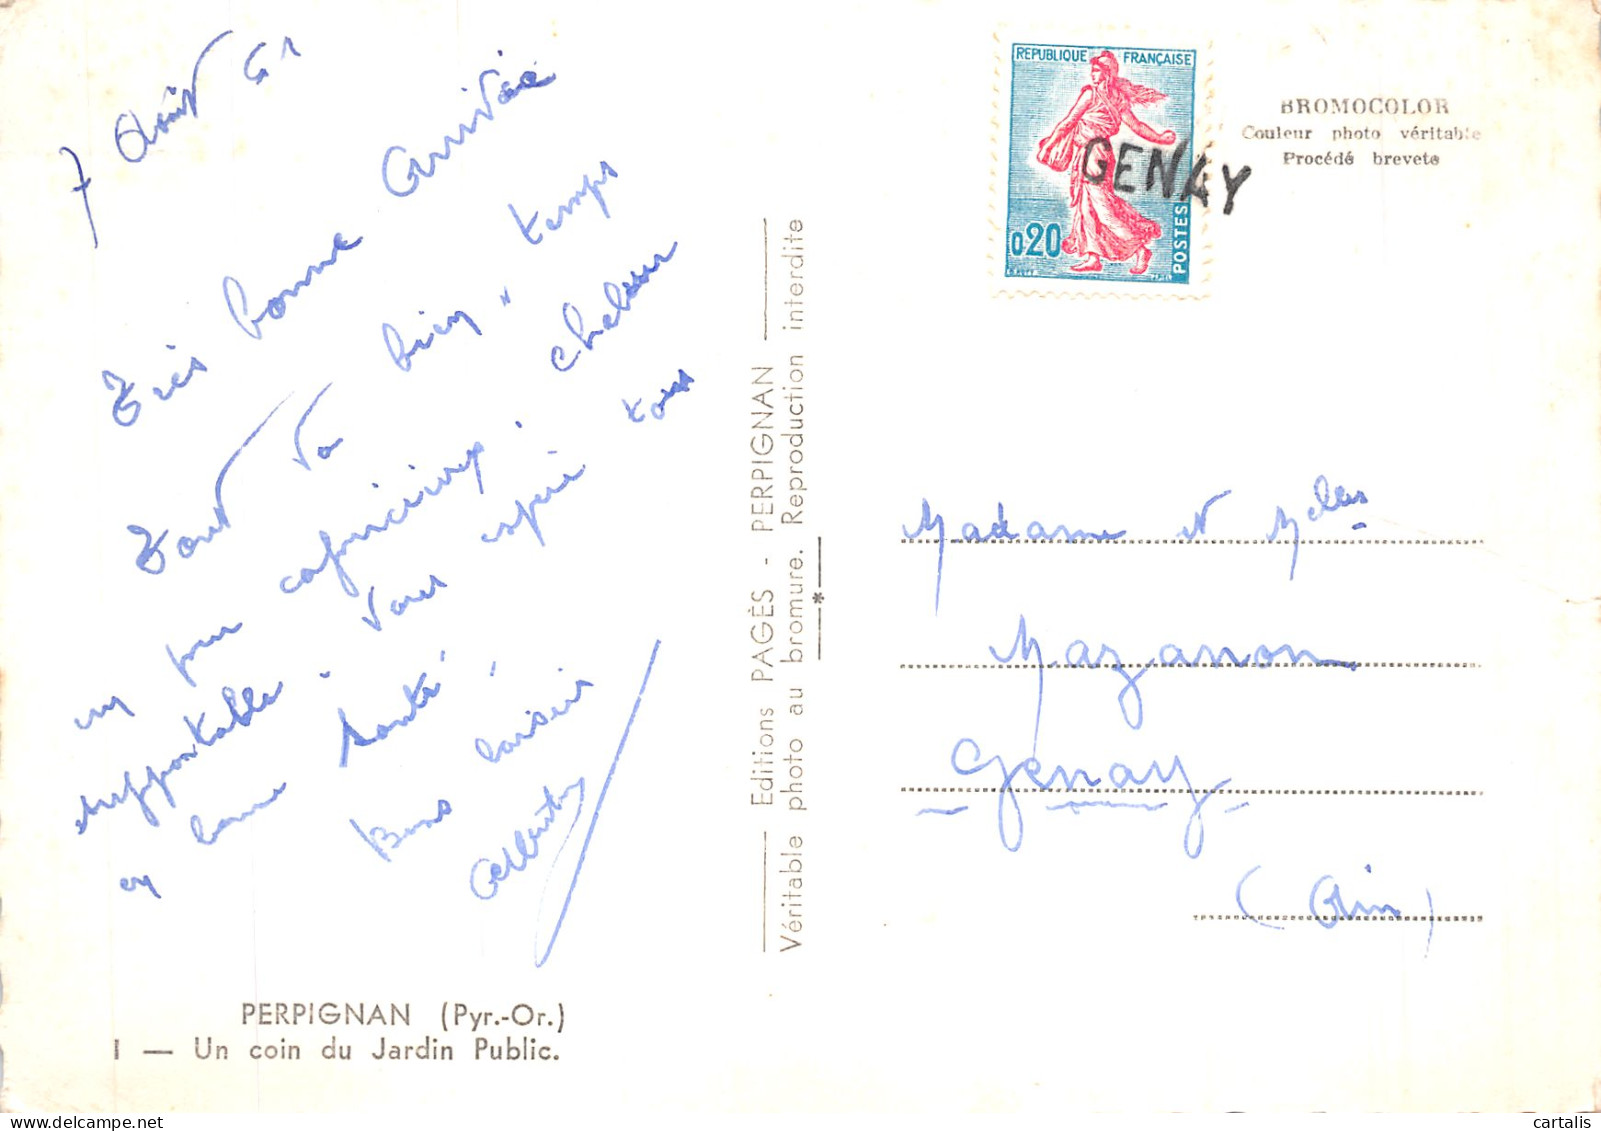 7 Août 61
Très bonne Arrivée
Tout va bien, temps
un peu capricieux, chaleur
supportable. Vous espère tous
en bonne santé,
Bons baisers
PERPIGNAN (Pyr.-Or.)
1 — Un coin du Jardin Public.
Editions PAGÈS - PERPIGNAN
Véritable photo au bromure. Reproduction interdite
*
REPUBLIQUE FRANÇAISE
0,20
POSTES
GENAY
BROMOCOLOR
Couleur photo véritable
Procédé breveté
Madame et Melles
Mazanon
Genay
(Ain)
cartalis